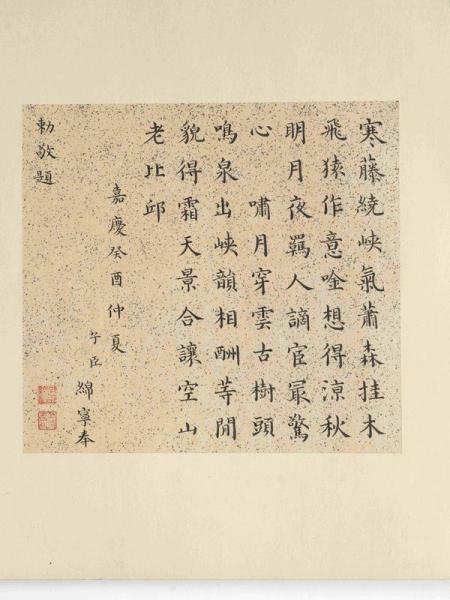 寒藤繞峽氣蕭森挂木
飛猿作意吟想得涼秋
明月夜羇人謫宦最驚
心　嘯月穿雲古樹頭
鳴泉出峽韻相酬等閒
貌得霜天景合讓空山
老比邱
嘉慶癸酉仲夏
子臣綿寧奉
勅敬題